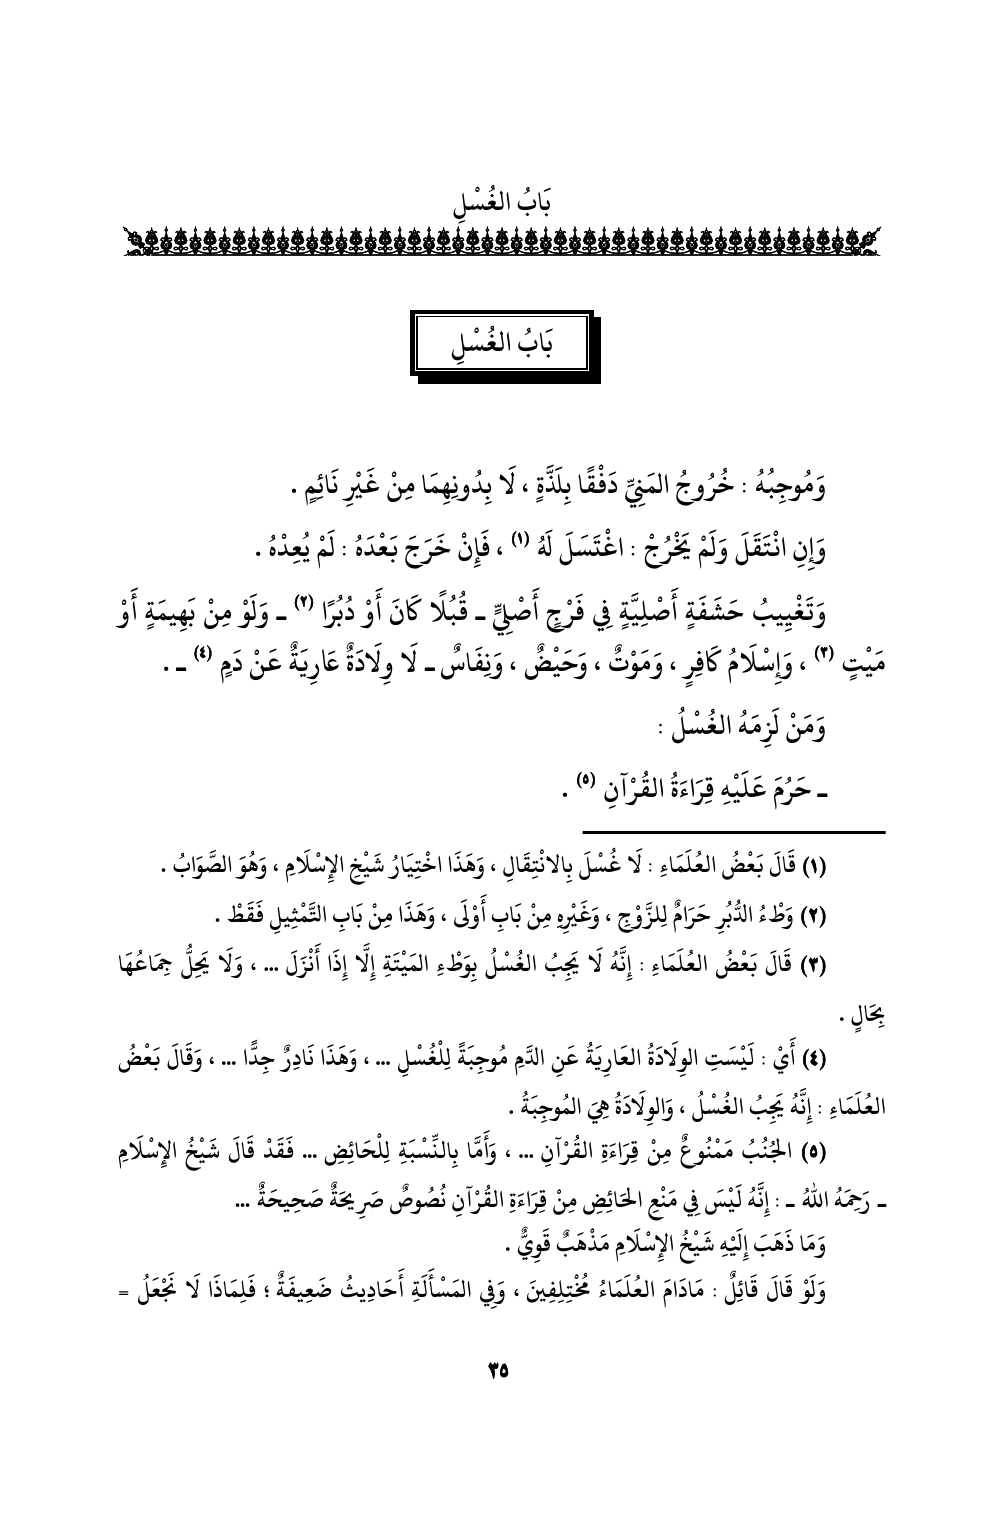 بَابُ الغُسْلِ
بَابُ الغُسْلِ
وَمُوجِبُهُ : خُرُوجُ المَنِيِّ دَفْقًا بِلَذَّةٍ ، لَا بِدُونِهِمَا مِنْ غَيْرِ نَائِمٍ .
وَإِنِ انْتَقَلَ وَلَمْ يَخْرُجْ : اغْتَسَلَ لَهُ (١) ، فَإِنْ خَرَجَ بَعْدَهُ : لَمْ يُعِدْهُ .
وَتَغْيِيبُ حَشَفَةٍ أَصْلِيَّةٍ فِي فَرْجٍ أَصْلِيٍّ ـ قُبُلًا كَانَ أَوْ دُبُرًا (٢) ـ وَلَوْ مِنْ بَهِيمَةٍ أَوْ
مَيْتٍ (٣) ، وَإِسْلَامُ كَافِرٍ ، وَمَوْتٌ ، وَحَيْضٌ ، وَنِفَاسٌ ـ لَا وِلَادَةٌ عَارِيَةٌ عَنْ دَمٍ (٤) ـ .
وَمَنْ لَزِمَهُ الغُسْلُ :
ـ حَرُمَ عَلَيْهِ قِرَاءَةُ القُرْآنِ (٥) .
(١) قَالَ بَعْضُ العُلَمَاءِ : لَا غُسْلَ بِالانْتِقَالِ ، وَهَذَا اخْتِيَارُ شَيْخِ الإِسْلَامِ ، وَهُوَ الصَّوَابُ .
(٢) وَطْءُ الدُّبُرِ حَرَامٌ لِلزَّوْجِ ، وَغَيْرِهِ مِنْ بَابِ أَوْلَى ، وَهَذَا مِنْ بَابِ التَّمْثِيلِ فَقَطْ .
(٣) قَالَ بَعْضُ العُلَمَاءِ : إِنَّهُ لَا يَجِبُ الغُسْلُ بِوَطْءِ المَيْتَةِ إِلَّا إِذَا أَنْزَلَ ... ، وَلَا يَحِلُّ جِمَاعُهَا
بِحَالٍ .
(٤) أَيْ : لَيْسَتِ الوِلَادَةُ العَارِيَةُ عَنِ الدَّمِ مُوجِبَةً لِلْغُسْلِ ... ، وَهَذَا نَادِرٌ جِدًّا ... ، وَقَالَ بَعْضُ
العُلَمَاءِ : إِنَّهُ يَجِبُ الغُسْلُ ، وَالوِلَادَةُ هِيَ المُوجِبَةُ .
(٥) الجُنُبُ مَمْنُوعٌ مِنْ قِرَاءَةِ القُرْآنِ ... ، وَأَمَّا بِالنِّسْبَةِ لِلْحَائِضِ ... فَقَدْ قَالَ شَيْخُ الإِسْلَامِ
ـ رَحِمَهُ اللهُ ـ : إِنَّهُ لَيْسَ فِي مَنْعِ الحَائِضِ مِنْ قِرَاءَةِ القُرْآنِ نُصُوصٌ صَرِيحَةٌ صَحِيحَةٌ ...
وَمَا ذَهَبَ إِلَيْهِ شَيْخُ الإِسْلَامِ مَذْهَبٌ قَوِيٌّ .
وَلَوْ قَالَ قَائِلٌ : مَادَامَ العُلَمَاءُ مُخْتِلِفِينَ ، وَفِي المَسْأَلَةِ أَحَادِيثُ ضَعِيفَةٌ ؛ فَلِمَاذَا لَا نَجْعَلُ =
٣٥